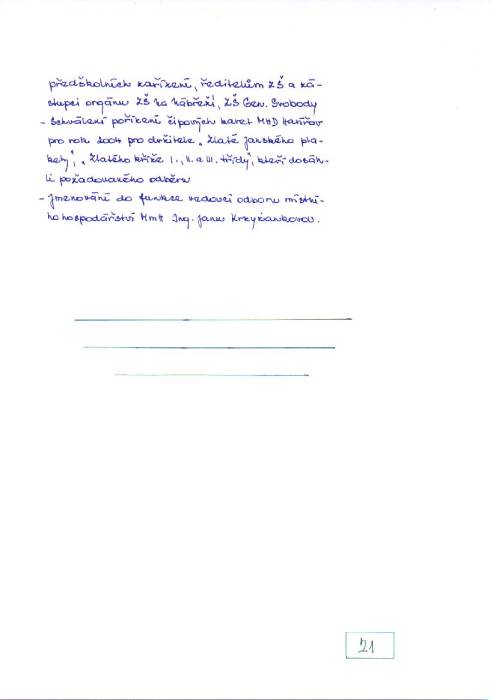 předškolních zařízení, ředitelům ZŠ a zá-
stupci orgánu ZŠ Na Nábřeží, ZŠ Gen. Svobody
- Schválení pořízení čipových karet MHD Havířov
pro rok 2004 pro držitele „Zlaté Janského pla-
kety“, „Zlatého kříže I., II. a III. třídy“, kteří dosáh-
li požadovaného odběru
- Jmenování do funkce vedoucí odboru místní-
ho hospodářství MmH Ing. Janu Krzyžankovou.
21